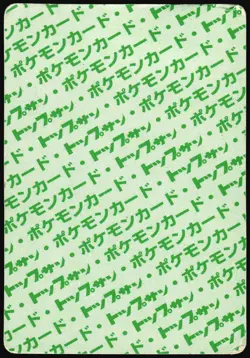 ポケモンカード・
トップサン・ポケモンカード・
ポケモンカード・トップサン・
トップサン・ポケモンカード・トップサン
ポケモンカード・トップサン・ポケモンカード
トップサン・ポケモンカード・トップサン
ポケモンカード・トップサン・ポケモンカード
トップサン・ポケモンカード・トップサン
ポケモンカード・トップサン・ポケモンカード
トップサン・ポケモンカード・トップサン
ポケモンカード・トップサン・ポケモンカード
トップサン・ポケモンカード
ポケモンカード・トップサン